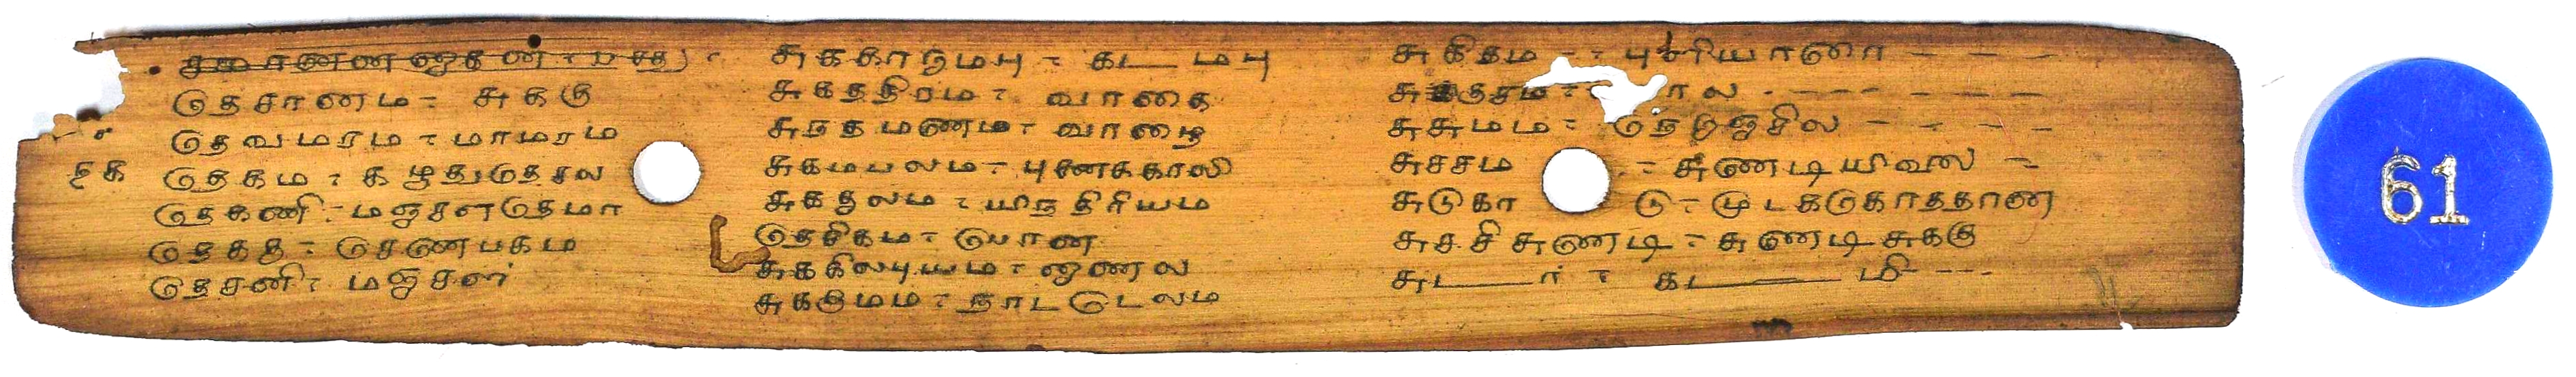 தெசாணம = சுககு
தெவமரம = மாமரம
உக
தெகம = கழுதுதெசல
தெகணி = மஞசளதெமா
தெகத = செணபகம
தெசனி = மஞசள
சுககாருமபு = கடமபு
சுகததிரம = வாகை
சுநதமணம = வாழை
சுகமபலம = புனைககாலி
சுகதலம = யிநதிரியம
தெசிகம = பொன
சுககிலபுயம = ஞணல
சுககுமம = நாடடெலம
சுகிகம = புளியாரை - - -
சுசுமம = நெருஞசில - - - -
சுசசம = சுணடியிலை -
சுடுகாடு = முடககொததான
சுசசி சுணடி = சுணடி சுககு
சுடர் = கடமி - - -
61